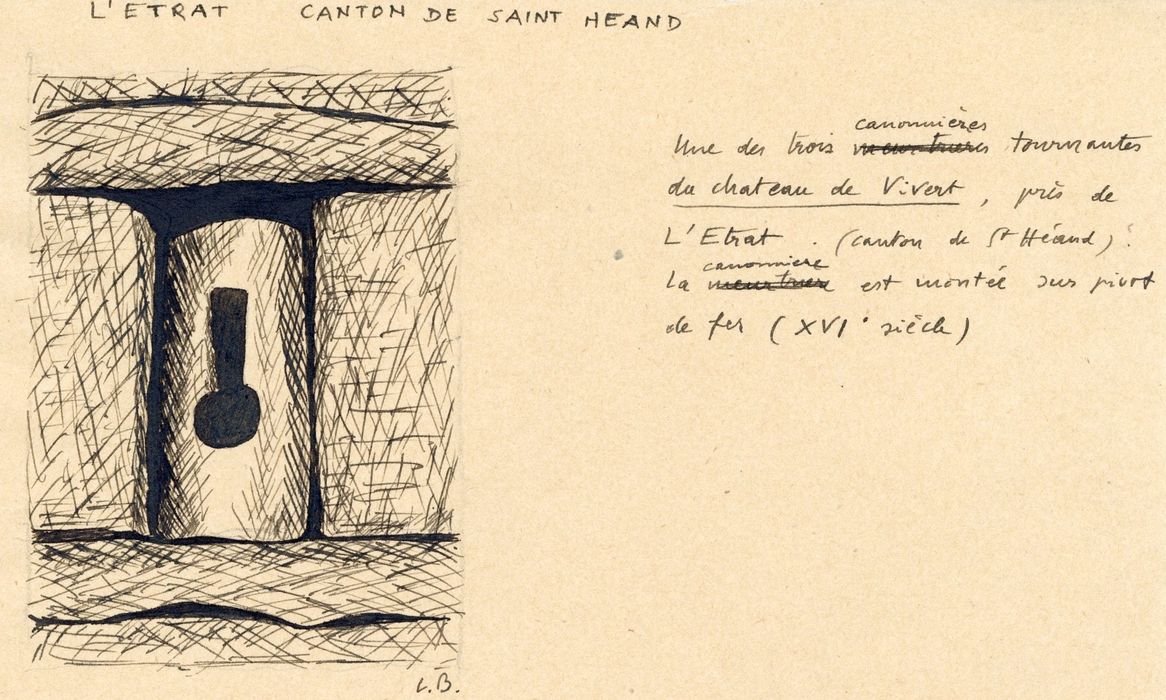 L'ETRAT CANTON DE SAINT HEAND
canonnières
Une des trois meurtrieres tournantes
du chateau de Vivert, près de
L'Etrat. (canton de St Héand).
canonniere
La meurtriere est montée sur pivot
de fer (XVI° siècle)
L.B.